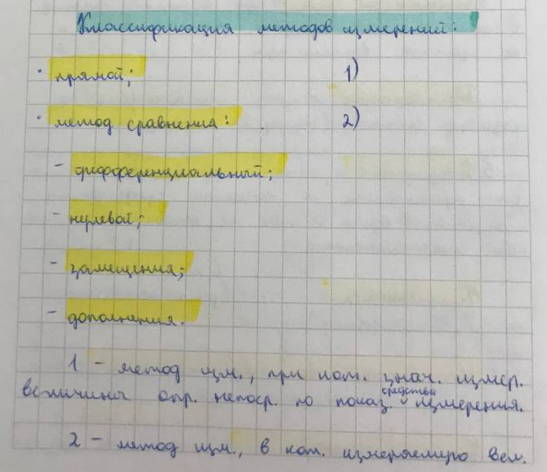 Классификация методов измерений:
· прямой; 1)
· метод сравнения: 2)
- дифференциальный;
- нулевой;
- замещения;
- дополнения.
1 - метод изм., при кот. знач. измер.
величины опр. непоср. по показ. средства измерения.
2 - метод изм., в кот. измеряемую вел.